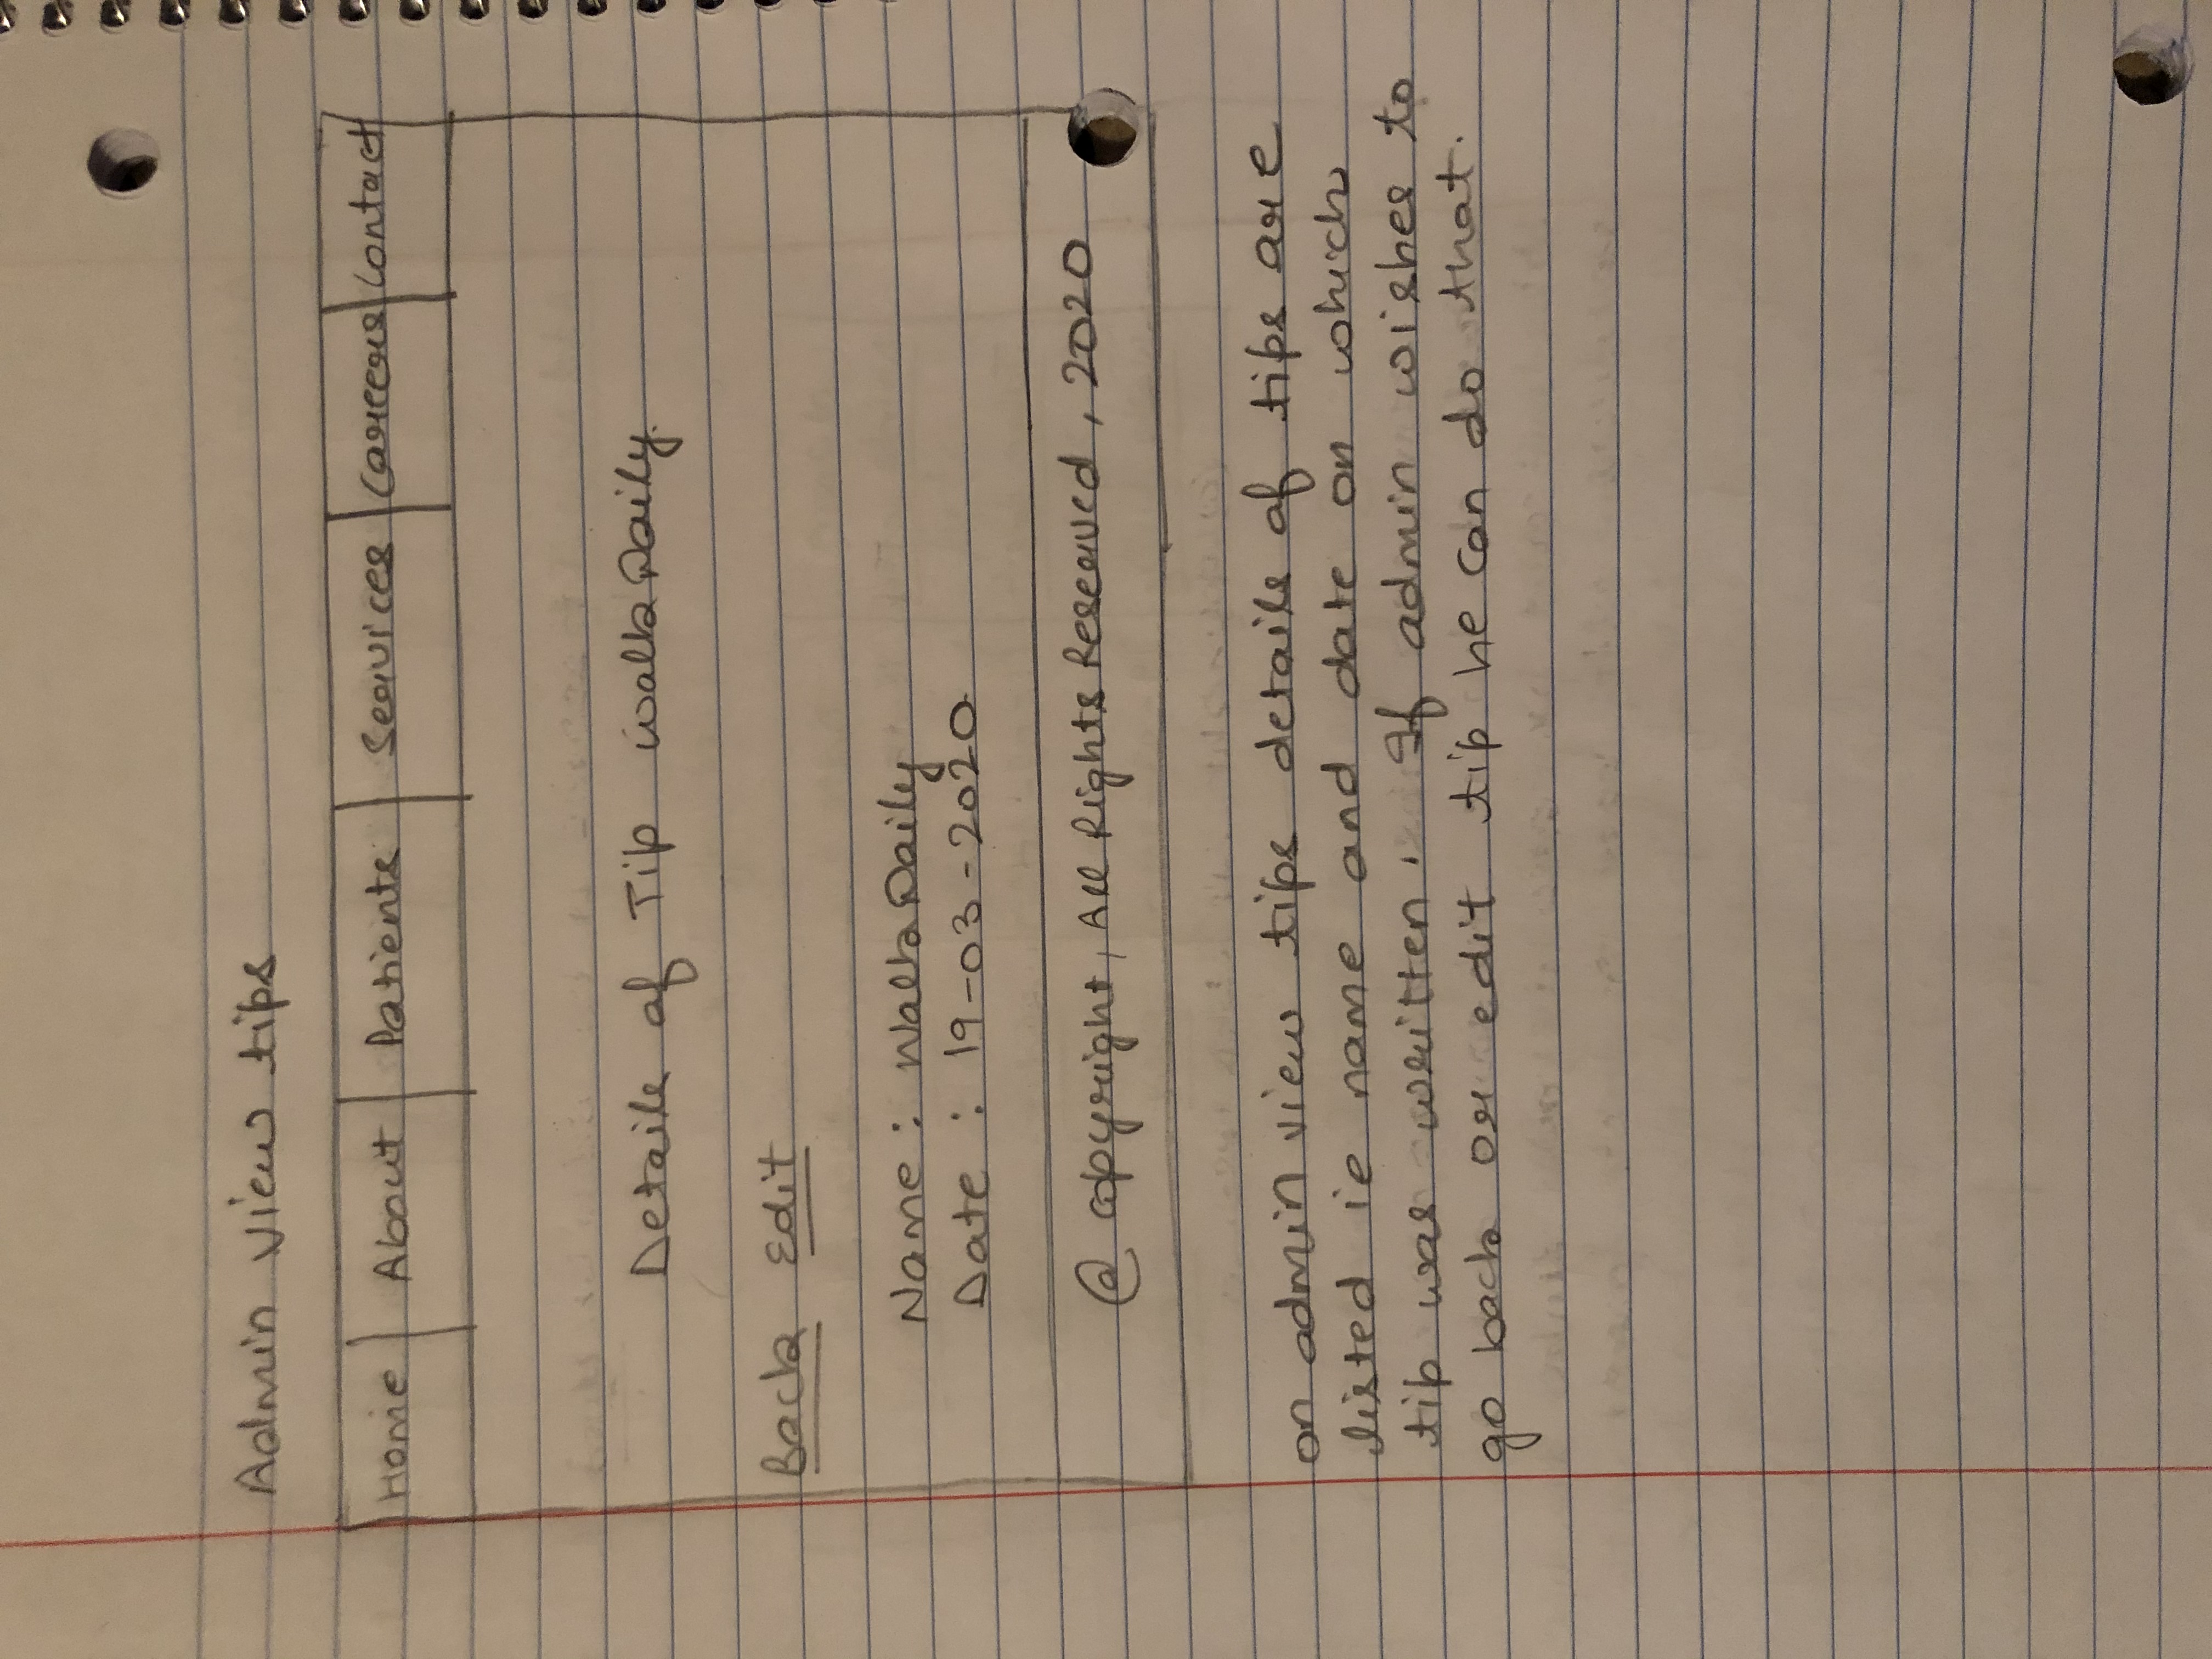 Admin View tips
Home About Patients Services Careers Contact
Details of Tip Walk Daily.
Back Edit
Name : Walk Daily
Date : 19-03-2020
@ copyright, All Rights Reserved, 2020
on admin view tips details of tips are
listed ie name and date on which
tip was written. If admin wishes to
go back or edit tip he can do that.